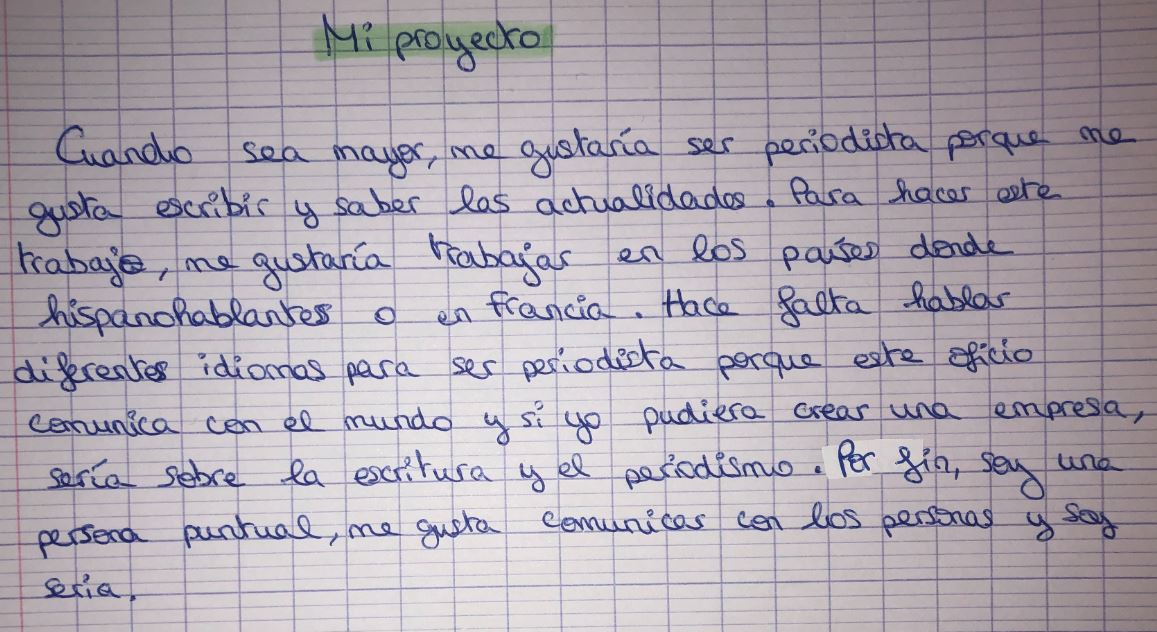 Mi proyecto
Cuando sea mayor, me gustaría ser periodista porque me
gusta escribir y saber las actualidades. Para hacer este
trabajo, me gustaría trabajar en los países donde
hispanohablantes o en francia. Hace falta hablar
diferentes idiomas para ser periodista porque este oficio
comunica con el mundo y si yo pudiera crear una empresa,
sería sobre la escritura y el periodismo. Por fin, soy una
persona puntual, me gusta comunicar con los personas y soy
seria.